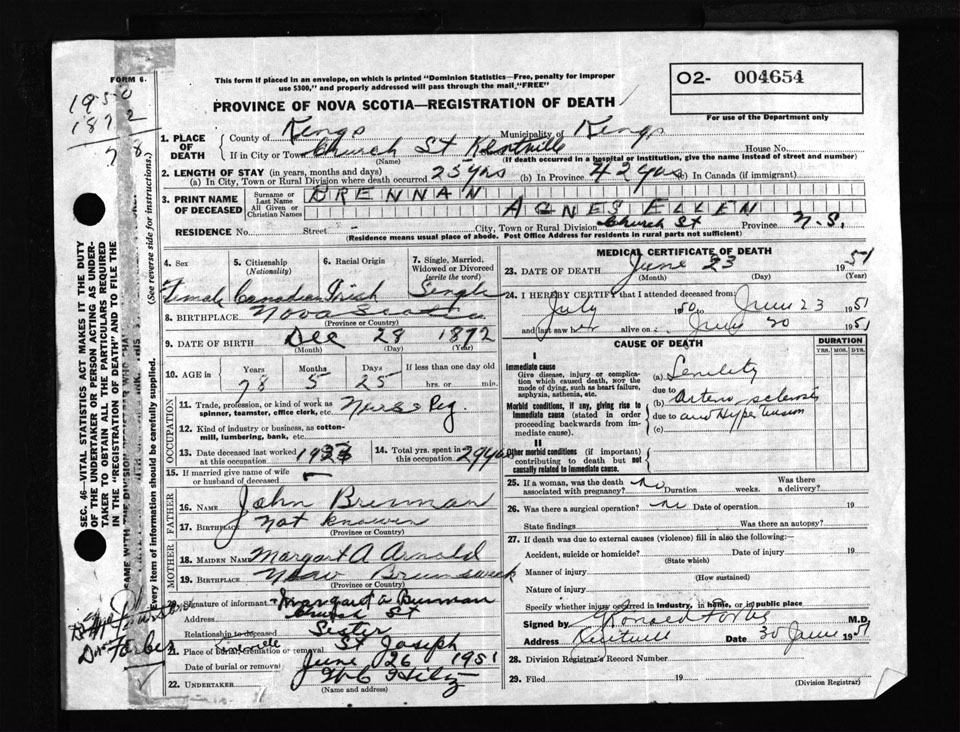 FORM 6.
This form if placed in an envelope, on which is printed "Dominion Statistics—Free, penalty for improper
use $300," and properly addressed will pass through the mail "FREE"
O2- 004654
For use of the Department only
1950
1872
78
PROVINCE OF NOVA SCOTIA—REGISTRATION OF DEATH
1. PLACE OF DEATH
County of Kings Municipality of Kings
If in City or Town Church St Kentville House No.
(Name) (If death occurred in a hospital or institution, give the name instead of street and number)
2. LENGTH OF STAY (in years, months and days)
(a) In City, Town or Rural Division where death occurred 25 yrs (b) In Province 42 yrs (c) In Canada (if immigrant)
3. PRINT NAME OF DECEASED
Surname or Last Name BRENNAN
All Given or Christian Names AGNES ELLEN
RESIDENCE No. Street - City, Town or Rural Division Church St Province N.S.
(Residence means usual place of abode. Post Office Address for residents in rural parts not sufficient)
4. Sex Female
5. Citizenship (Nationality) Canadian
6. Racial Origin Irish
7. Single, Married, Widowed or Divorced (write the word) Single
8. BIRTHPLACE Nova Scotia
(Province or Country)
9. DATE OF BIRTH Dec 28 1872
(Month) (Day) (Year)
10. AGE in Years Months Days If less than one day old
78 5 25 hrs. or min.
OCCUPATION
11. Trade, profession, or kind of work as spinner, teamster, office clerk, etc. Nurse Reg.
12. Kind of industry or business, as cotton-mill, lumbering, bank, etc.
13. Date deceased last worked at this occupation
14. Total yrs. spent in this occupation 29 yrs
15. If married give name of wife or husband of deceased
FATHER
16. NAME John Brennan
17. BIRTHPLACE Not known
(Province or Country)
MOTHER
18. MAIDEN NAME Margaret A Arnold
19. BIRTHPLACE New Brunswick
(Province or Country)
20. Signature of informant Margaret A Brennan
Address Church St
Relationship to deceased Sister
21. Place of burial, cremation or removal St Joseph
Date of burial or removal June 26 1951
22. UNDERTAKER
(Name and address)
MEDICAL CERTIFICATE OF DEATH
23. DATE OF DEATH June 23 1951
(Month) (Day) (Year)
24. I HEREBY CERTIFY that I attended deceased from
July 1950 to June 23 1951
and last saw her alive on 20 1951
CAUSE OF DEATH
DURATION
YRS. MOS. DYS.
I
Immediate cause
Give disease, injury or complication which caused death, NOT the mode of dying, such as heart failure, asphyxia, asthenia, etc.
(a) Senility
due to
Morbid conditions, if any, giving rise to immediate cause (stated in order proceeding backwards from immediate cause).
(b) arterio sclerosis
due to and Hypertension
(c)
II
Other morbid conditions (if important) contributing to death but not causally related to immediate cause.
25. If a woman, was the death associated with pregnancy? no Duration weeks. Was there a delivery?
26. Was there a surgical operation? no Date of operation 19
State findings Was there an autopsy?
27. If death was due to external causes (violence) fill in also the following:—
Accident, suicide or homicide? Date of injury 19
(State which)
Manner of injury
(How sustained)
Nature of injury
Specify whether injury occurred in industry, in home, or in public place
Signed by M.D.
Address Kentville Date 30 June 1951
28. Division Registrar's Record Number
29. Filed 19
(Division Registrar)
SEC. 46—VITAL STATISTICS ACT MAKES IT THE DUTY
OF THE UNDERTAKER OR PERSON ACTING AS UNDER-
TAKER TO OBTAIN ALL THE PARTICULARS REQUIRED
IN THE "REGISTRATION OF DEATH" AND TO FILE THE
Every item of information should be carefully supplied. (See reverse side for instructions.)
Dr Forbes